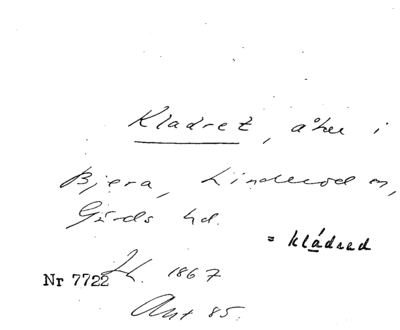 Kladret, åker i
Bjera, Linderöd sn,
Gärds hd.
= kládred
Nr 7722 H. 1867
Ant 85.